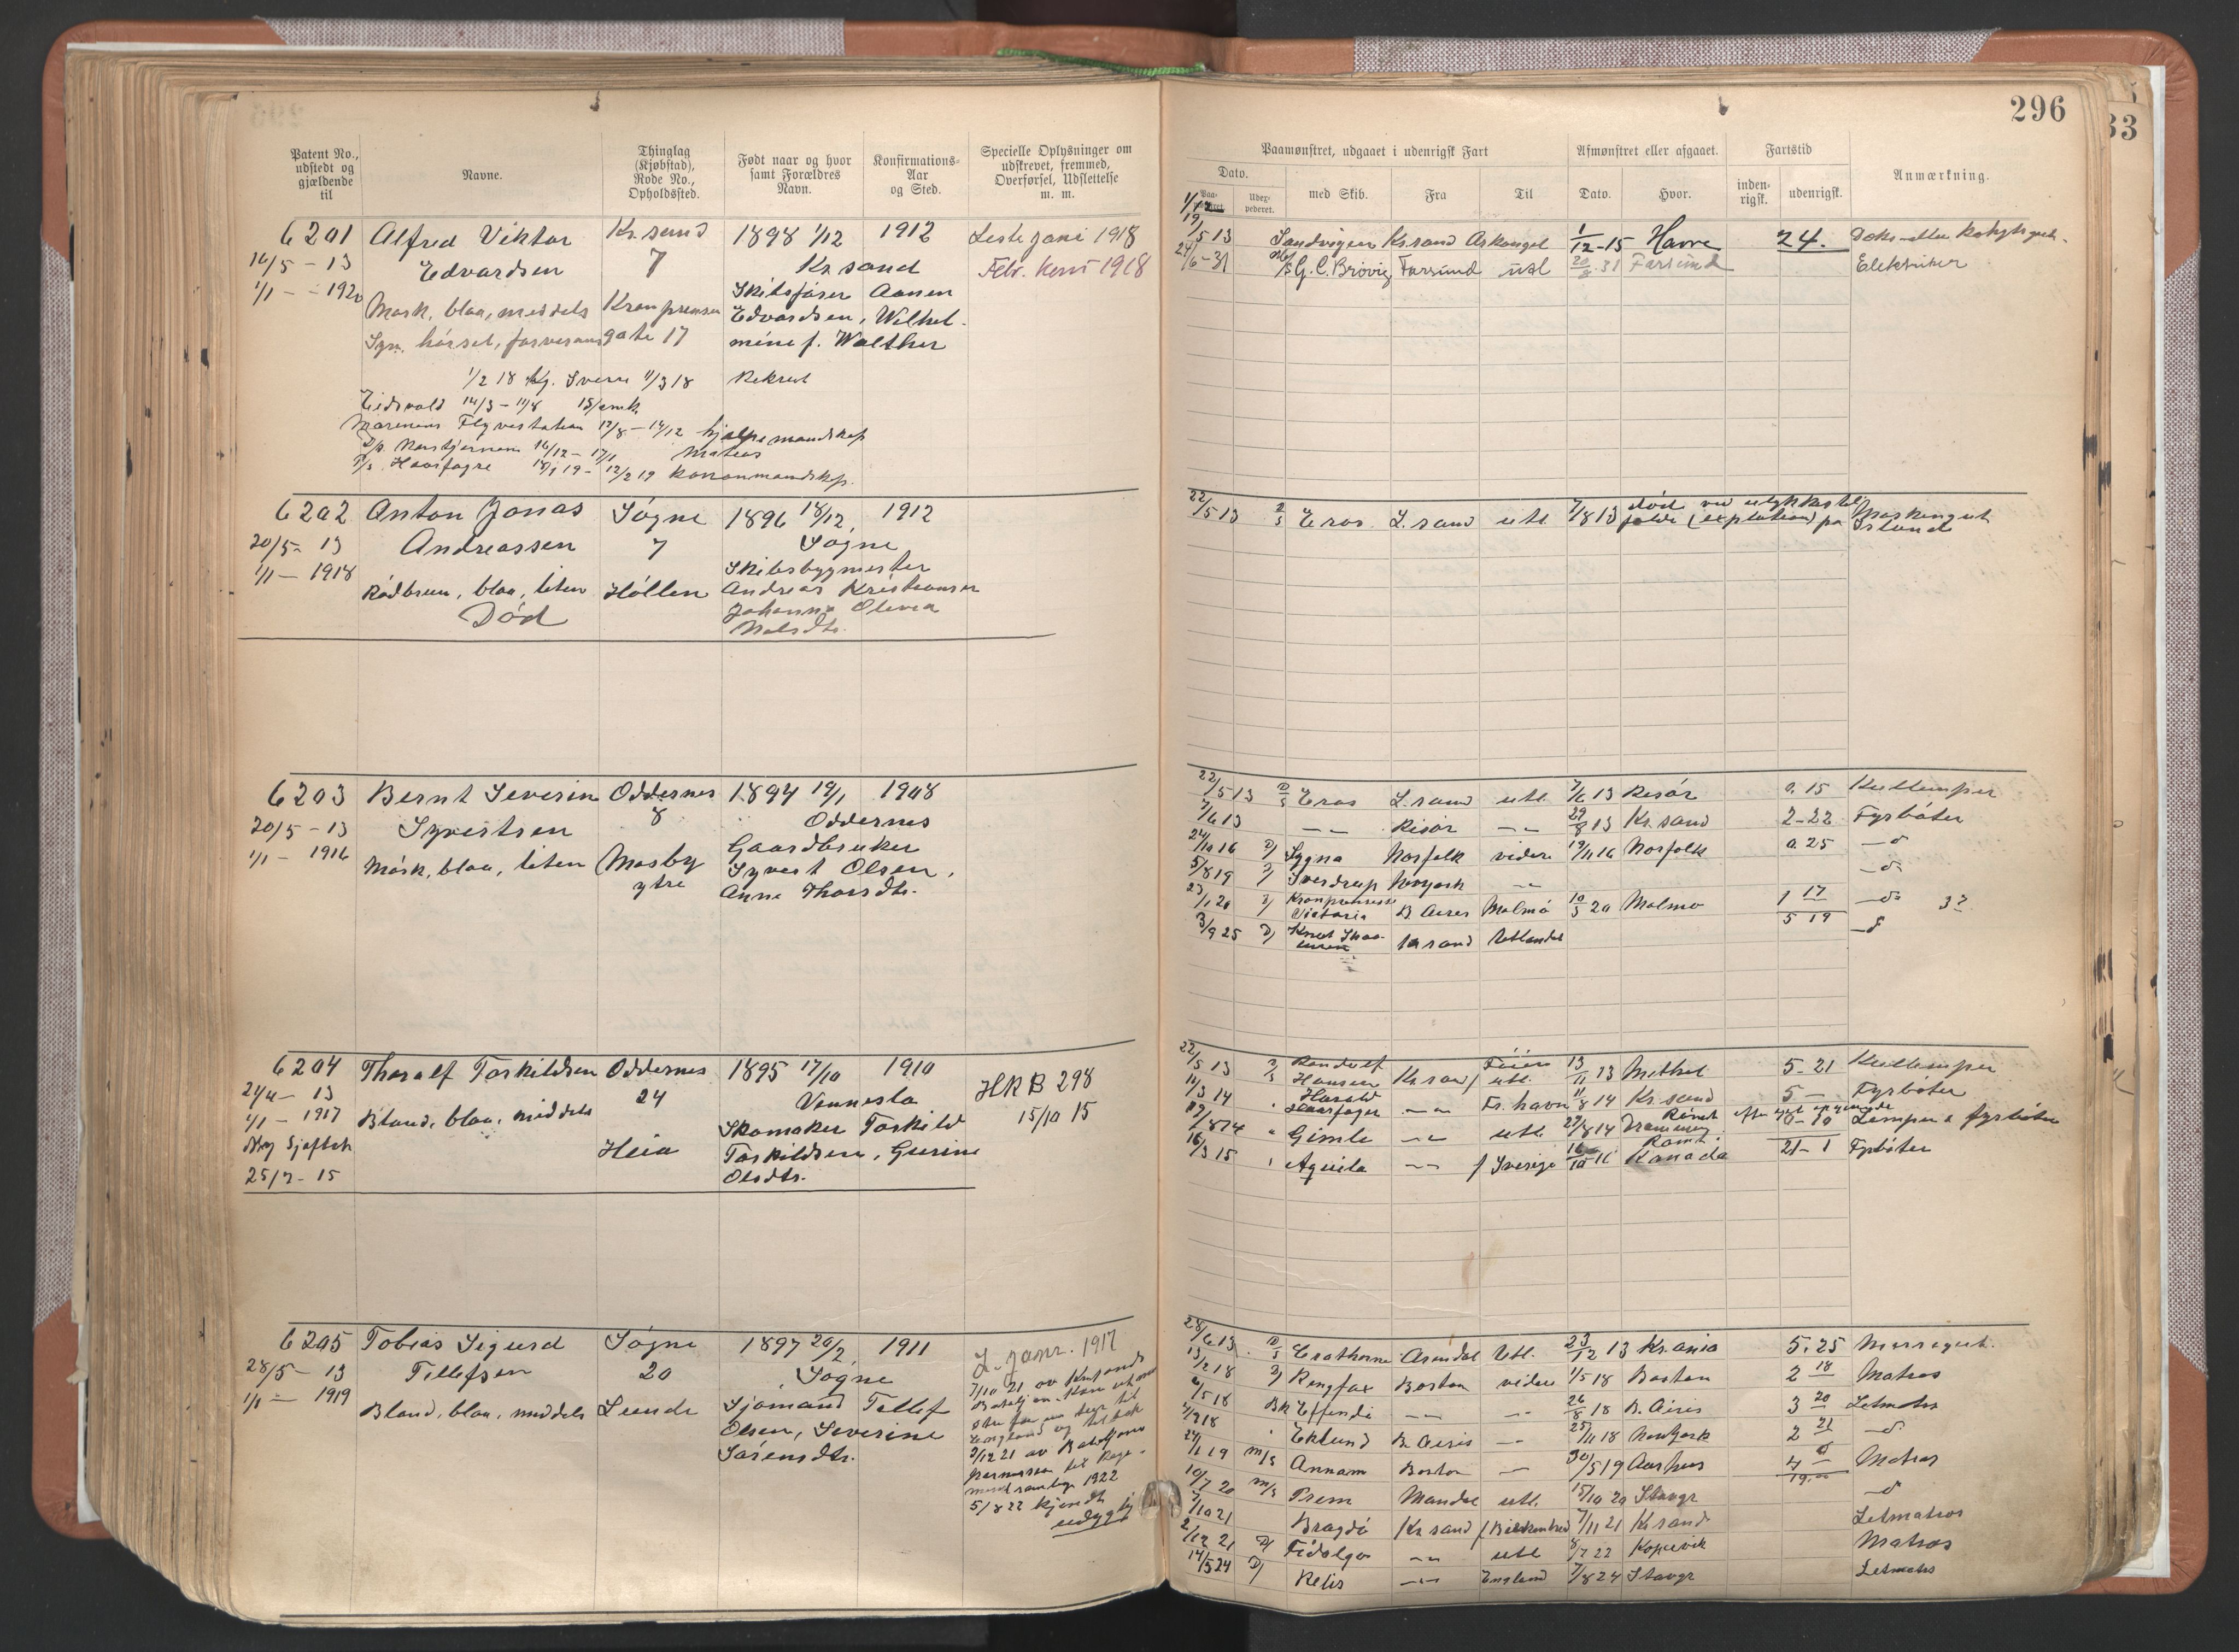 296
33
Patent No., udstedt og gjældende til
Navne.
Thinglag (Kjøbstad), Rode No., Opholdssted.
Født naar og hvor samt Forældres Navn.
Konfirmations-Aar og Sted.
Specielle Oplysninger om udskrevet, fremmed, Overførsel, Udslettelse m. m.
Paamønstret, udgaaet i udenrigsk Fart
Afmønstret eller afgaaet.
Fartstid
Anmærkning.
Dato.
Udexpederet.
med Skib.
Fra
Til
Dato.
Hvor.
indenrigsk.
udenrigsk.
6201 Alfred Viktor Kr.sand 1898 1/12 1912 Leste jani 1918
16/5 - 13 Edvardsen 7 Kr sand Febr. 1918
1/1 - - 1920 Skibsfører Aanen
Mørk, blaa, middels Kronprinsen Edvardsen, Wilhel-
Syn, hørsel, farvesans gate 17 mine f. Walther
1/2 18 Kg. Sverre 11/3 18 Rekrut
Eidsvold 14/3 - 11/8
Marinens Flyvestation 12/8 - 14/12 hjælpemandskap
16/12 - 17/1 Matros
Haarfagre 18/1 19 - 12/2 19 Kanonmandskp.
5 13 Sandvigen Kr.sand Arkangel 1/12-15 Havre 24.
24/6-31 G. C. Brøvig Farsund utl 20/8 31 Farsund Elektriker
6202 Anton Jonas Søgne 1896 18/12 1912
20/5 - 13 Andreassen 7 Søgne
1/1 - 1918 Skibsbygmester
Rødbrun, blaa, liten Høllen Andreas Kristiansen
Død Johanne Olivia
Nelsdtr.
22/5 13 D/S Eros L.sand utl. 7/8 13 død ved ulykkestil- Maskingut
fælde (explotion) på Island
6203 Bernt Severin Oddernes 1894 19/1 1908
20/5 - 13 Syvertsen 8 Oddernes
1/1 - 1916 Gaardbruker
Mørk, blaa, liten Mosby Syvert Olsen,
ytre Anne Thorsdtr.
22/5 13 D/S Eros L.sand utl. 7/6 13 Risør 0.15 Kullemper
7/6 13 -"- Risør -"- 29/8 13 Kr.sand 2-22 Fyrbøter
24/10 16 D/ Sygna Norfolk videre 19/11 16 Norfolk 0.25 -d
5/8 19 D/ Sverdrup -"- -d-
23/1 20 D/ Kronprinsesse Victoria B. Aires Malmø 10/5 20 Malmø 1 17 -d-
5 19
3/9 25 D/ Knut Skaaluren Kr sand Utlandet -d
6204 Thoralf Torkildsen Oddernes 1895 17/10 1910 HRB 298
24/4 - 13 24 Vennesla 15/10 15
1/1 - 1917 Blond, blaa, middels Skomaker Torkild
Ny Sjøftsb Heia Torkildsen, Gurine
25/2 - 15 Olsdtr.
22/5 13 D/S Randulf Hansen Kr sand utl. 13/11 13 Methel 5-21 Kullemper
14/3 14 Harald Haarfager -"- Fr. havn 11/8 14 Kr.sand 5- Fyrbøter
8 14 Gimle -"- utl. 27/8 14 Drammen Lemper & fyrbøter
16/3 15 Aquila -"- / Sverige Kanada 21-1 Fyrbøter
6205 Tobias Sigurd Søgne 1897 20/2 1911 L. janr. 1917
28/5 - 13 Tellefsen 20 Søgne
1/1 - 1919 Sjømand Tellef
Blond, blaa, middels Lunde Olsen, Severine
Sørensdtr.
7/10 21 av
England og tilbak
2/12 21 av
1922
5/8 22 kjendt
udygtig
28/6 13 D/S Erathorne Arendal Utl. 23/12 13 Kr.ania 5.25 Messegut.
13/2 18 D/ Ringfax Boston videre 1/5 18 Boston 2 18 Matros
5 18 Bk Effendi -"- -"- 26/8 18 B. Aires 3 20 Letmatrs
9 18 Eklund B. Aires -"- 25/11 18 New York 2 21 -d-
1 19 m/s Annam Boston -"- 30/5 19 Aarhus Matros
10/7 20 m/s Prem Mandal utl. 15/10 20 Stavgr -d
10 21 Bragdø Kr sand / Birkenhead 7/11 21 Kr sand Letmatros
2/12 21 D/ Fidelgo -"- utl 8/7 22 Kopervik Matros
14/5 24 D/ Relis -"- England 7/8 24 Stavgr Letmatrs